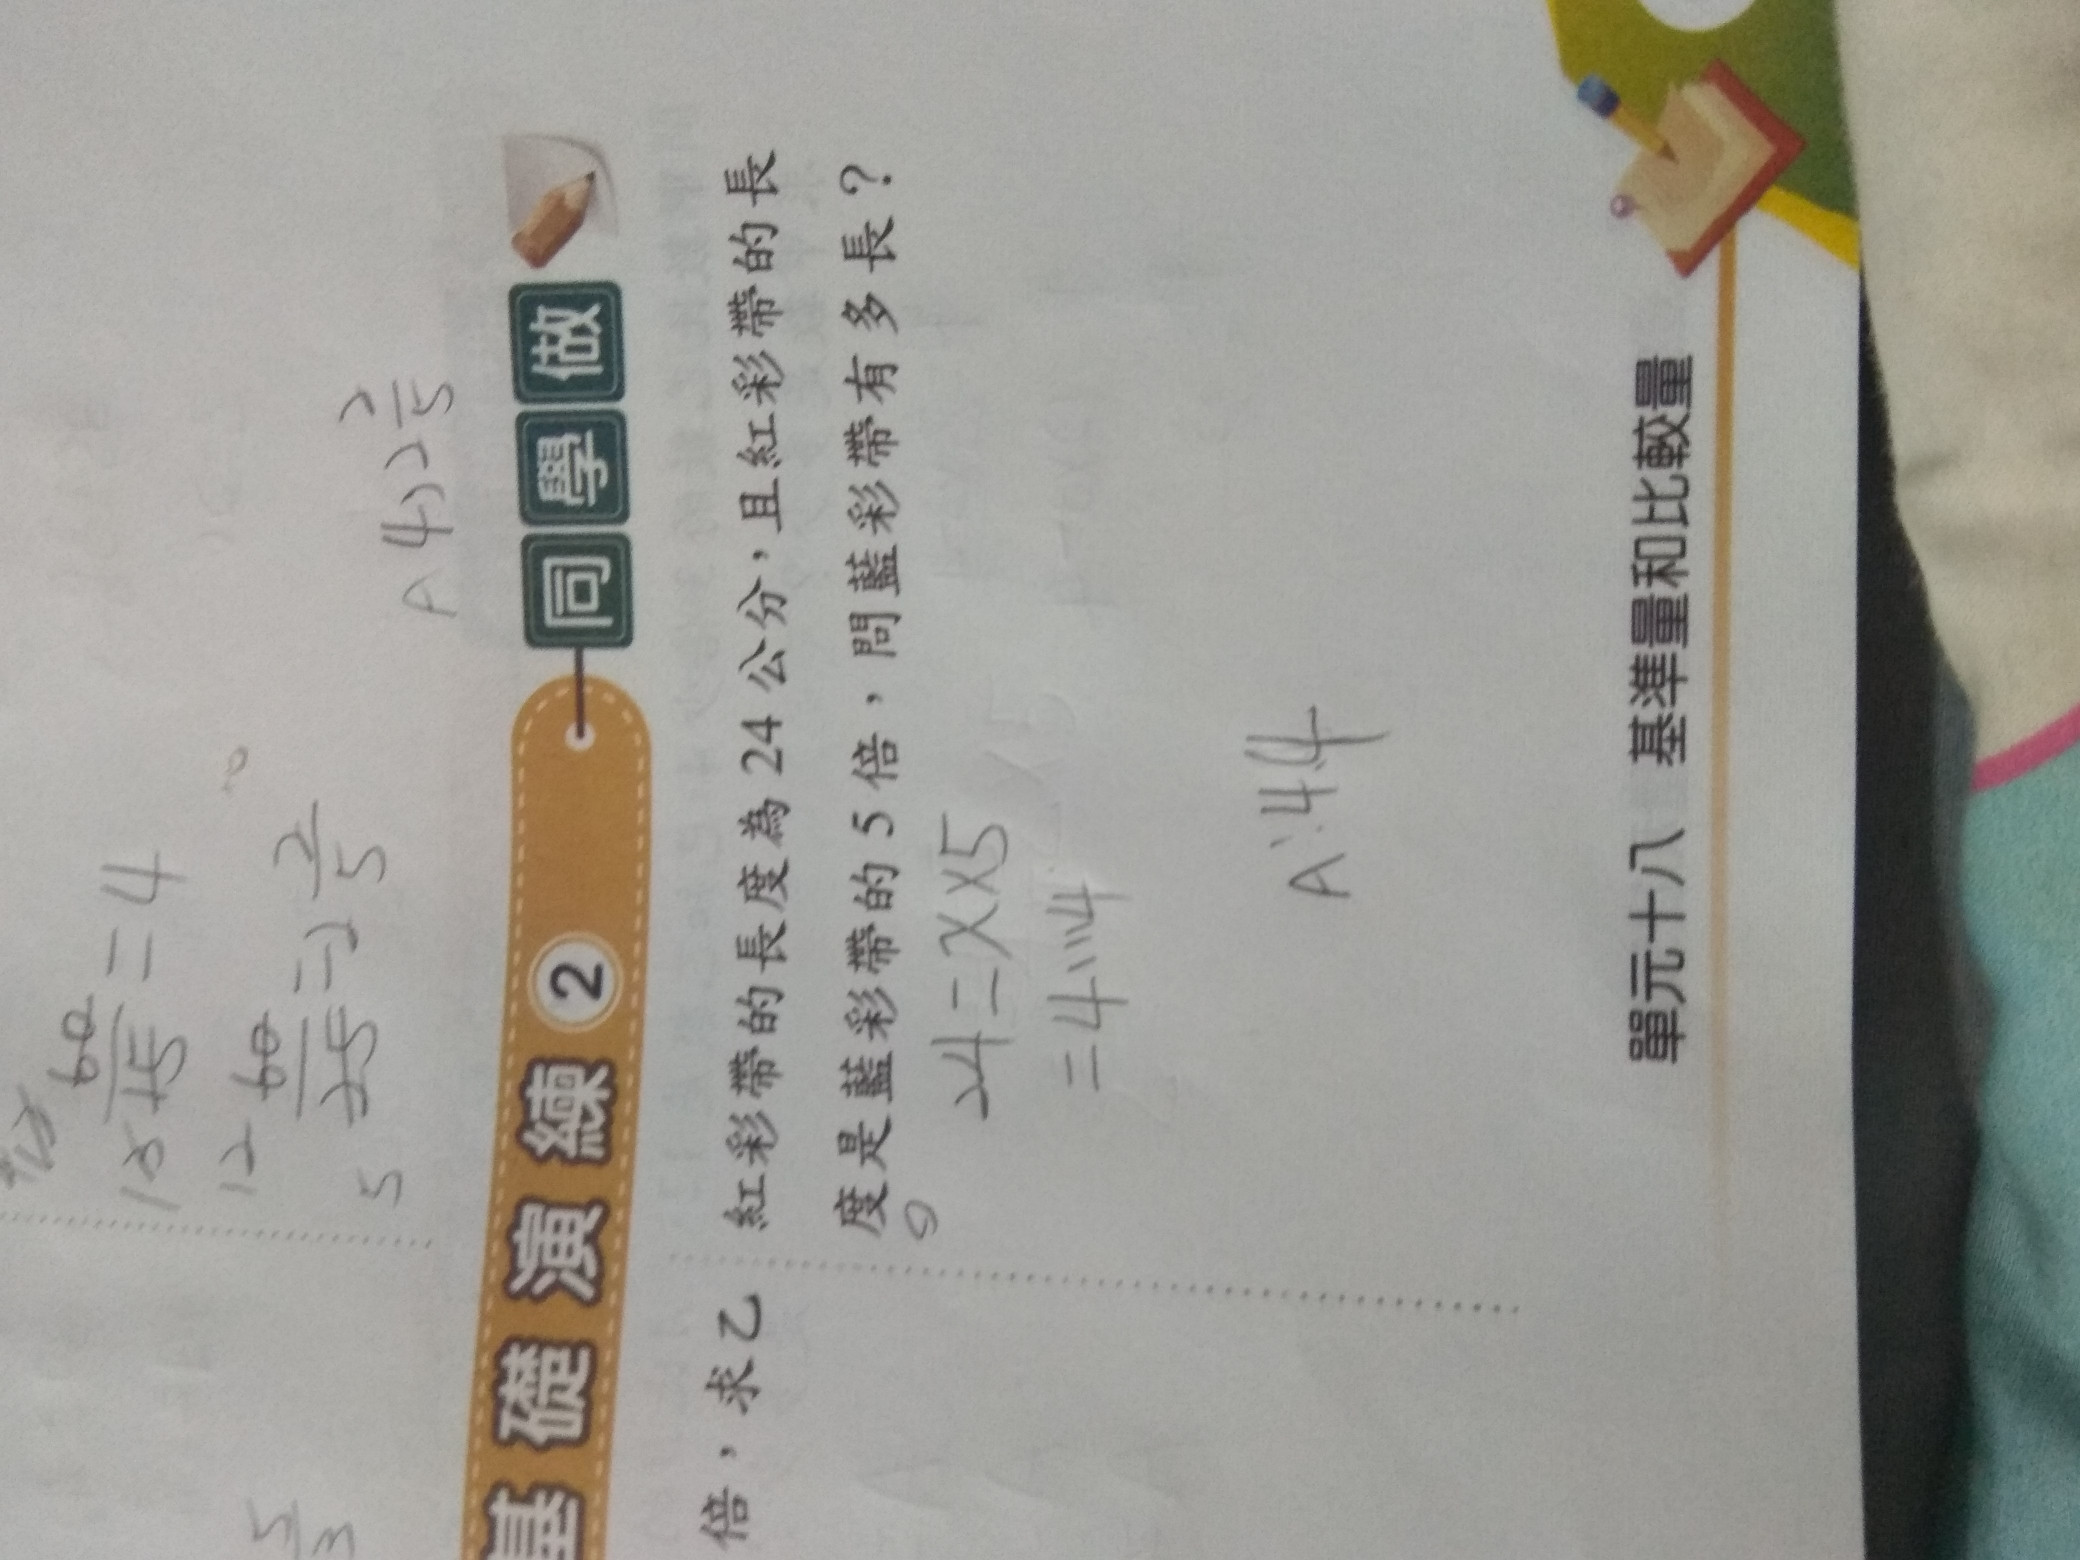 60
15
=4
12
60
25
=2
2
5
5
A 4) 2 2/5
基礎演練 2 同學做
倍，求乙
紅彩帶的長度為 24 公分，且紅彩帶的長
度是藍彩帶的 5 倍，問藍彩帶有多長？
24=X×5
=4…4
A:44
單元十八 基準量和比較量